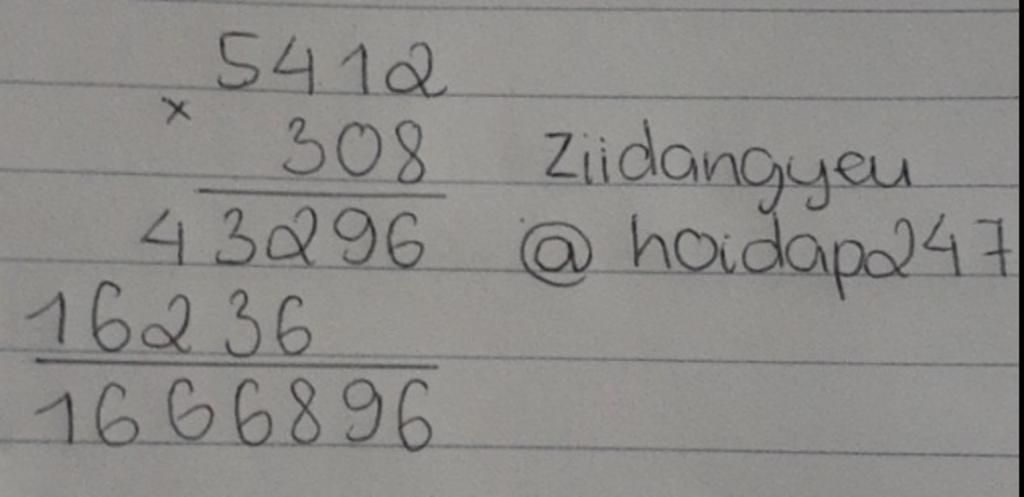 5412
×
308 ziidangyeu
43296 @ hoidap247
16236
1666896